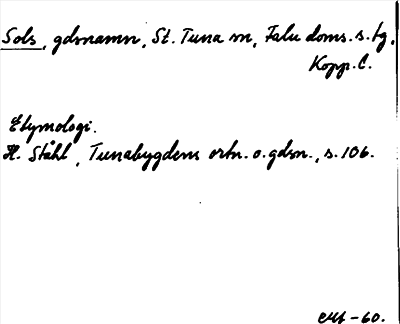 Sols, gdsnamn, St. Tuna sn, Falu doms. s. tg,
Kopp. l.
Etymologi.
H. Ståhl, Tunabygdens ortn. o. gdsn., s. 106.
-60.